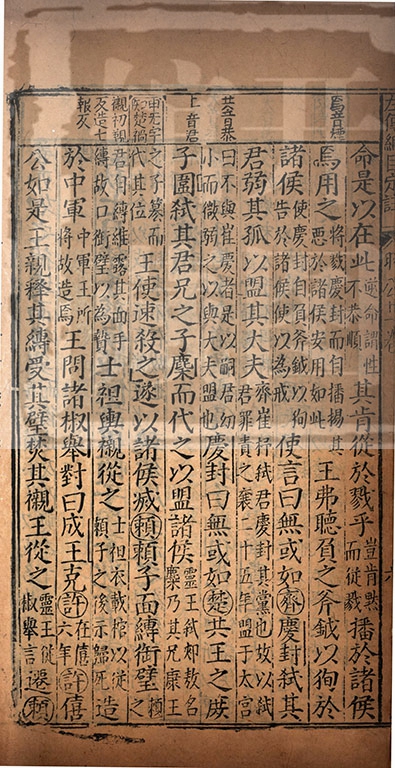 焉音煙
命是以在此逆命謂性不恭順其肯從於戮乎豈肯默而從戮播於諸侯
焉用之將戮慶封而自播揚其惡於諸侯安用如此王弗聽負之斧鉞以徇於
諸侯使慶封自負斧鉞以狥告於諸侯使以為戒使言曰無或如齊慶封弒其
君弱其孤以盟其大夫齊崔杼弒君慶封其黨也故以弒君罪責之襄二十五年盟于太宮
共音恭
曰不與崔慶者是以嗣君幼小而微弱之以與大夫盟也慶封曰無或如楚共王之庶
子圍弒其君兄之子麇而代之以盟諸侯靈王弒郟敖名麇乃其兄康王
之子篡而代其位王使速殺之遂以諸侯滅賴賴子面縛銜璧賴之
櫬初覲反造七報反
君自縛維露其面手縛故口銜璧以為贄士袒輿櫬從之士袒衣載棺以從賴子之後示歸死造
於中軍中軍王所將故造焉王問諸椒舉對曰成王克許在僖六年許僖
公如是王親釋其縛受其璧焚其櫬王從之靈王從椒舉言遷賴